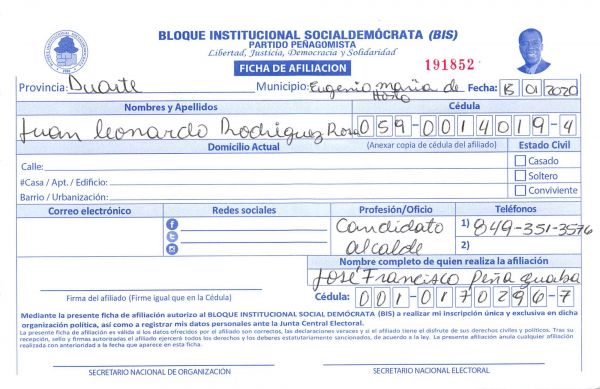 BLOQUE INSTITUCIONAL SOCIALDEMÓCRATA (BIS)
PARTIDO PEÑAGOMISTA
Libertad, Justicia, Democracia y Solidaridad
FICHA DE AFILIACION 191852
Provincia: Duarte Municipio: Eugenio maria de Hosto Fecha: 15 01 2020
Nombres y Apellidos Cédula
Juan Leonardo Rodriguez Rosa 059-0014019-4
Domicilio Actual (Anexar copia de cédula del afiliado) Estado Civil
Calle: Casado
#Casa / Apt. / Edificio: Soltero
Barrio / Urbanización: Conviviente
Correo electrónico Redes sociales Profesión/Oficio Teléfonos
Candidato 1) 849-351-3576
alcalde 2)
Nombre completo de quien realiza la afiliación
José Francisco Peña Guaba
Firma del afiliado (Firme igual que en la Cédula) Cédula: 001-0170296-7
Mediante la presente ficha de afiliación autorizo al BLOQUE INSTITUCIONAL SOCIAL DEMÓCRATA (BIS) a realizar mi inscripción única y exclusiva en dicha
organización política, así como a registrar mis datos personales ante la Junta Central Electoral.
La presente ficha de afiliación es válida si los datos ofrecidos por el afiliado son correctos, las declaraciones veraces y si el afiliado tiene el disfrute de sus derechos civiles y políticos. Tras su
recepción, sello y firmas autorizadas el afiliado ejercerá todos los derechos y los deberes estatutariamente sancionados, de acuerdo a la ley. La presente afiliación anula cualquier afiliación
realizada con anterioridad a la fecha que aparece en esta ficha.
SECRETARIO NACIONAL DE ORGANIZACIÓN SECRETARIO NACIONAL ELECTORAL